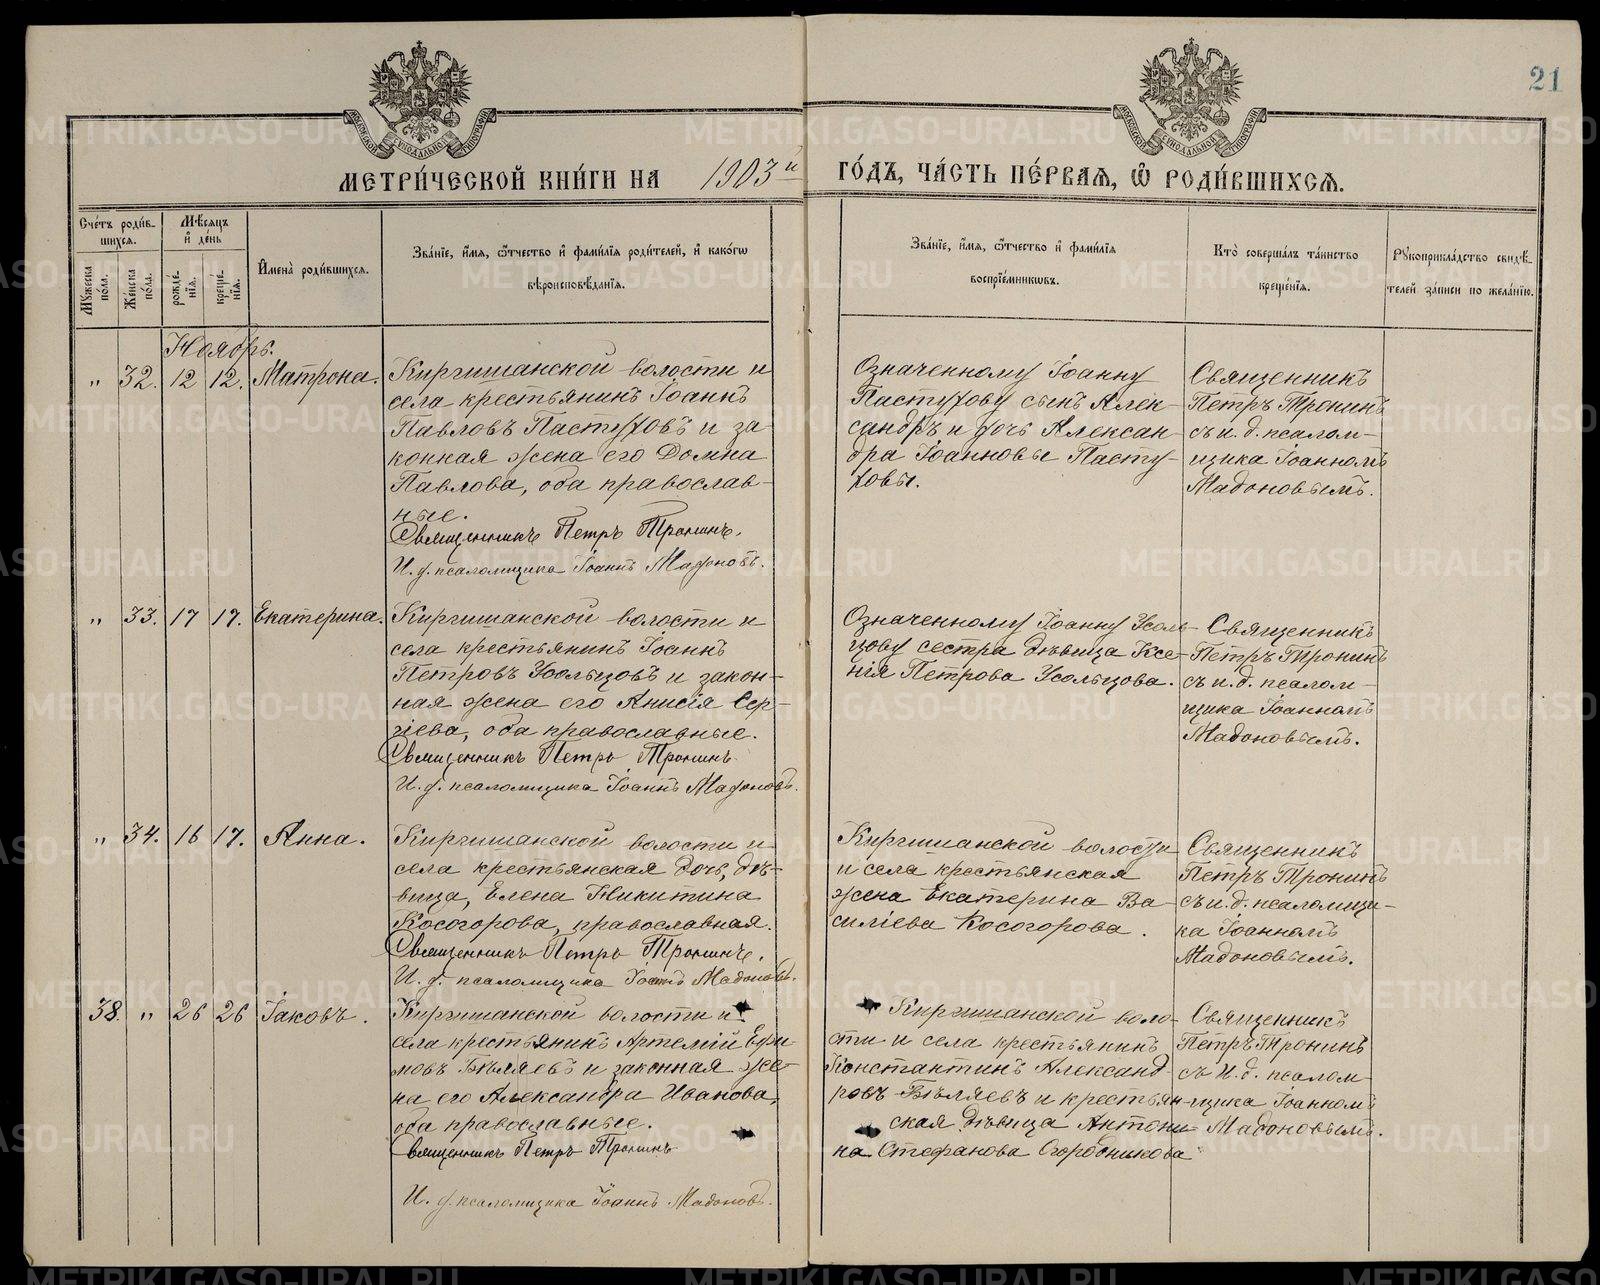 21
МЕТРИ́ЧЕСКОЙ КНИ́ГИ НА 1903й ГО́ДЪ, ЧА́СТЬ ПЕ́РВАЯ, Ѽ РОДИ́ВШИХСЯ.
Сче́тъ роди́в-
шихся.
Мꙋ́жеска по́ла.
Же́нска по́ла.
Мѣ́сяцъ и҆ де́нь
рожде́-нїя.
креще́-нїя.
И҆мена̀ роди́вшихся.
Зва́нїе, и҆́мя, ѻ҆́тчество и҆ фами́лїя роди́телей, и҆ како́гѡ
вѣроисповѣ́данїя.
Зва́нїе, и҆́мя, ѻ҆́тчество и҆ фами́лїя
воспрїе́мникѡвъ.
Кто̀ соверша́лъ та́инство
креще́нїя.
Рꙋкоприкла́дство свидѣ́-
телей за́писи по жела́нїю.
Ноябрь.
„ 32. 12 12. Матрона.
Киргишанской волости и
села крестьянинъ Іоаннъ
Павловъ Пастуховъ и за-
конная жена его Домна
Павлова, оба православ-
ные.
Священникъ Петръ Тронинъ.
И. д. псаломщика Іоаннъ Мадоновъ.
Означенному Іоанну
Пастухову сынъ Алек-
сандръ и дочь Алексан-
дра Іоанновы Пасту-
ховы.
Священникъ
Петръ Тронинъ
съ и. д. псалом-
щика Іоанномъ
Мадоновымъ.
„ 33. 17 17. Екатерина.
Киргишанской волости и
села крестьянинъ Іоаннъ
Петровъ Усольцовъ и закон-
ная жена его Анисія Сер-
гіева, оба православные.
Священникъ Петръ Тронинъ.
И. д. псаломщика Іоаннъ Мадоновъ.
Означенному Іоанну Усоль-
цову сестра дѣвица Ксе-
нія Петрова Усольцова.
Священникъ
Петръ Тронинъ
съ и. д. псалом-
щика Іоанномъ
Мадоновымъ.
„ 34. 16 17. Анна.
Киргишанской волости и
села крестьянская дочь, дѣ-
вица, Елена Никитина
Косогорова, православная.
Священникъ Петръ Тронинъ.
И. д. псаломщика Іоаннъ Мадоновъ.
Киргишанской волости
и села крестьянская
жена Екатерина Ва-
силіева Косогорова.
Священникъ
Петръ Тронинъ
съ и. д. псаломщи-
ка Іоанномъ
Мадоновымъ.
38. „ 26 26 Іаковъ.
Киргишанской волости и
села крестьянинъ Артемій Ефи-
мовъ Бѣляевъ и законная же-
на его Александра Иванова,
оба православные.
Священникъ Петръ Тронинъ
И. д. псаломщика Іоаннъ Мадоновъ.
Киргишанской воло-
сти и села крестьянинъ
Константинъ Александ-
ровъ Бѣляевъ и крестьян-
ская дѣвица Антони-
на Стефанова Огородникова
Священникъ
Петръ Тронинъ
съ и. д. псалом-
щика Іоанномъ
Мадоновымъ.
METRIKI.GASO-URAL.RU